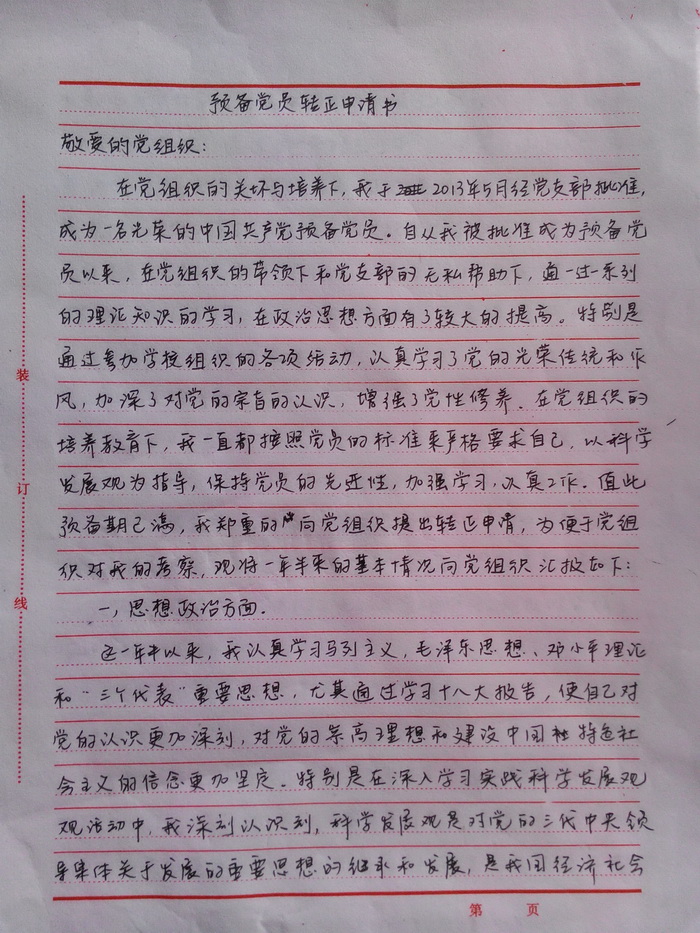 预备党员转正申请书
敬爱的党组织：
在党组织的关怀与培养下，我于2013年5月经党支部批准，
成为一名光荣的中国共产党预备党员。自从我被批准成为预备党
员以来，在党组织的带领下和党支部的无私帮助下，通过一系列
的理论知识的学习，在政治思想方面有了较大的提高。特别是
通过参加学校组织的各项活动，认真学习了党的光荣传统和作
风，加深了对党的宗旨的认识，增强了党性修养。在党组织的
培养教育下，我一直都按照党员的标准来严格要求自己，以科学
发展观为指导，保持党员的先进性，加强学习，认真工作。值此
预备期已满，我郑重的向党组织提出转正申请，为便于党组
织对我的考察，现将一年半来的基本情况向党组织汇报如下：
一，思想政治方面．
这一年半以来，我认真学习马列主义，毛泽东思想、邓小平理论
和“三个代表”重要思想，尤其通过学习十八大报告，使自己对
党的认识更加深刻，对党的崇高理想和建设中国特色社
会主义的信念更加坚定．特别是在深入学习实践科学发展观
观活动中，我深刻认识到，科学发展观是对党的三代中央领
导集体关于发展的重要思想的继承和发展，是我国经济社会
装
订
线
第 页